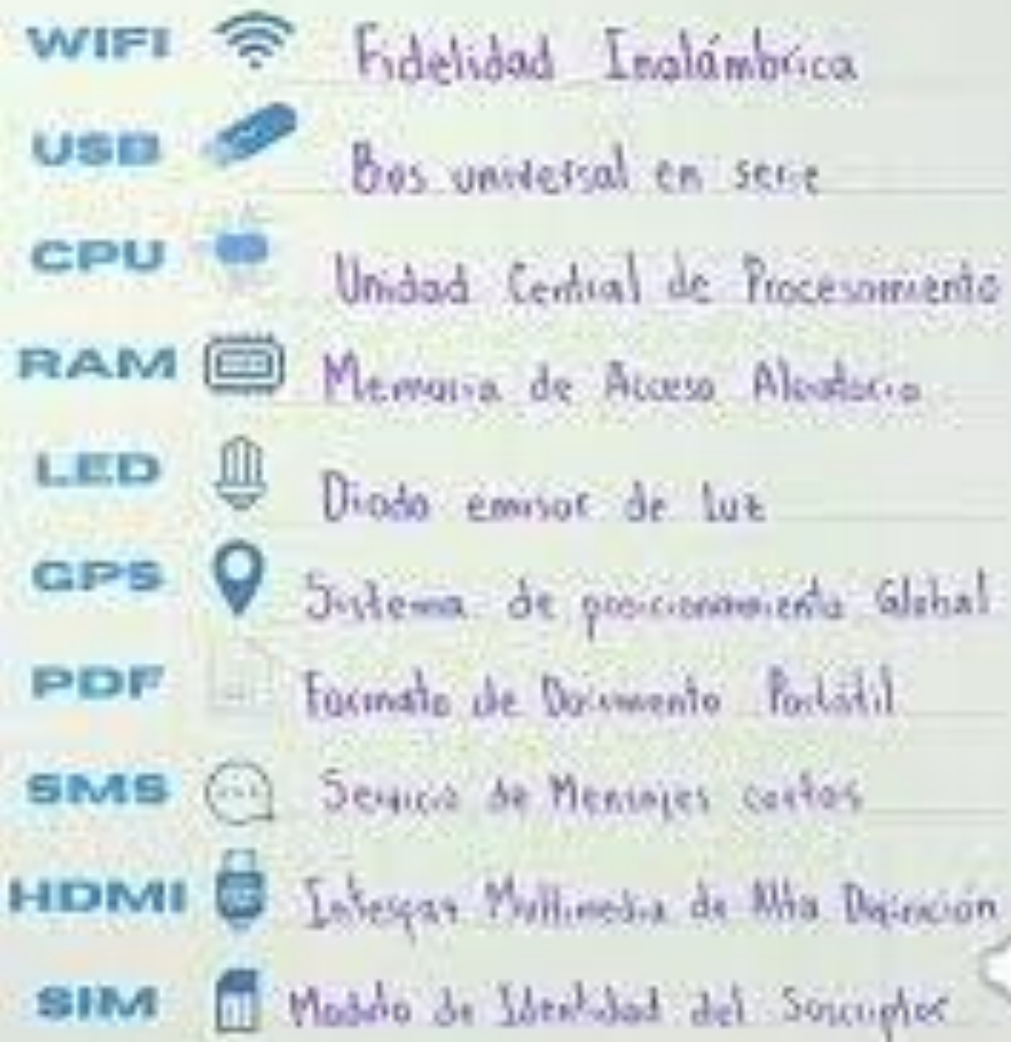 WIFI Fidelidad Inalámbrica
USB Bus universal en serie
CPU Unidad Central de Procesamiento
RAM Memoria de Acceso Aleatorio
LED Diodo emisor de luz
GPS Sistema de posicionamiento Global
PDF Formato de Documento Portátil
SMS Servicio de Mensajes cortos
HDMI Multimedia de Alta Definición
SIM Modulo de Identidad del Suscriptor